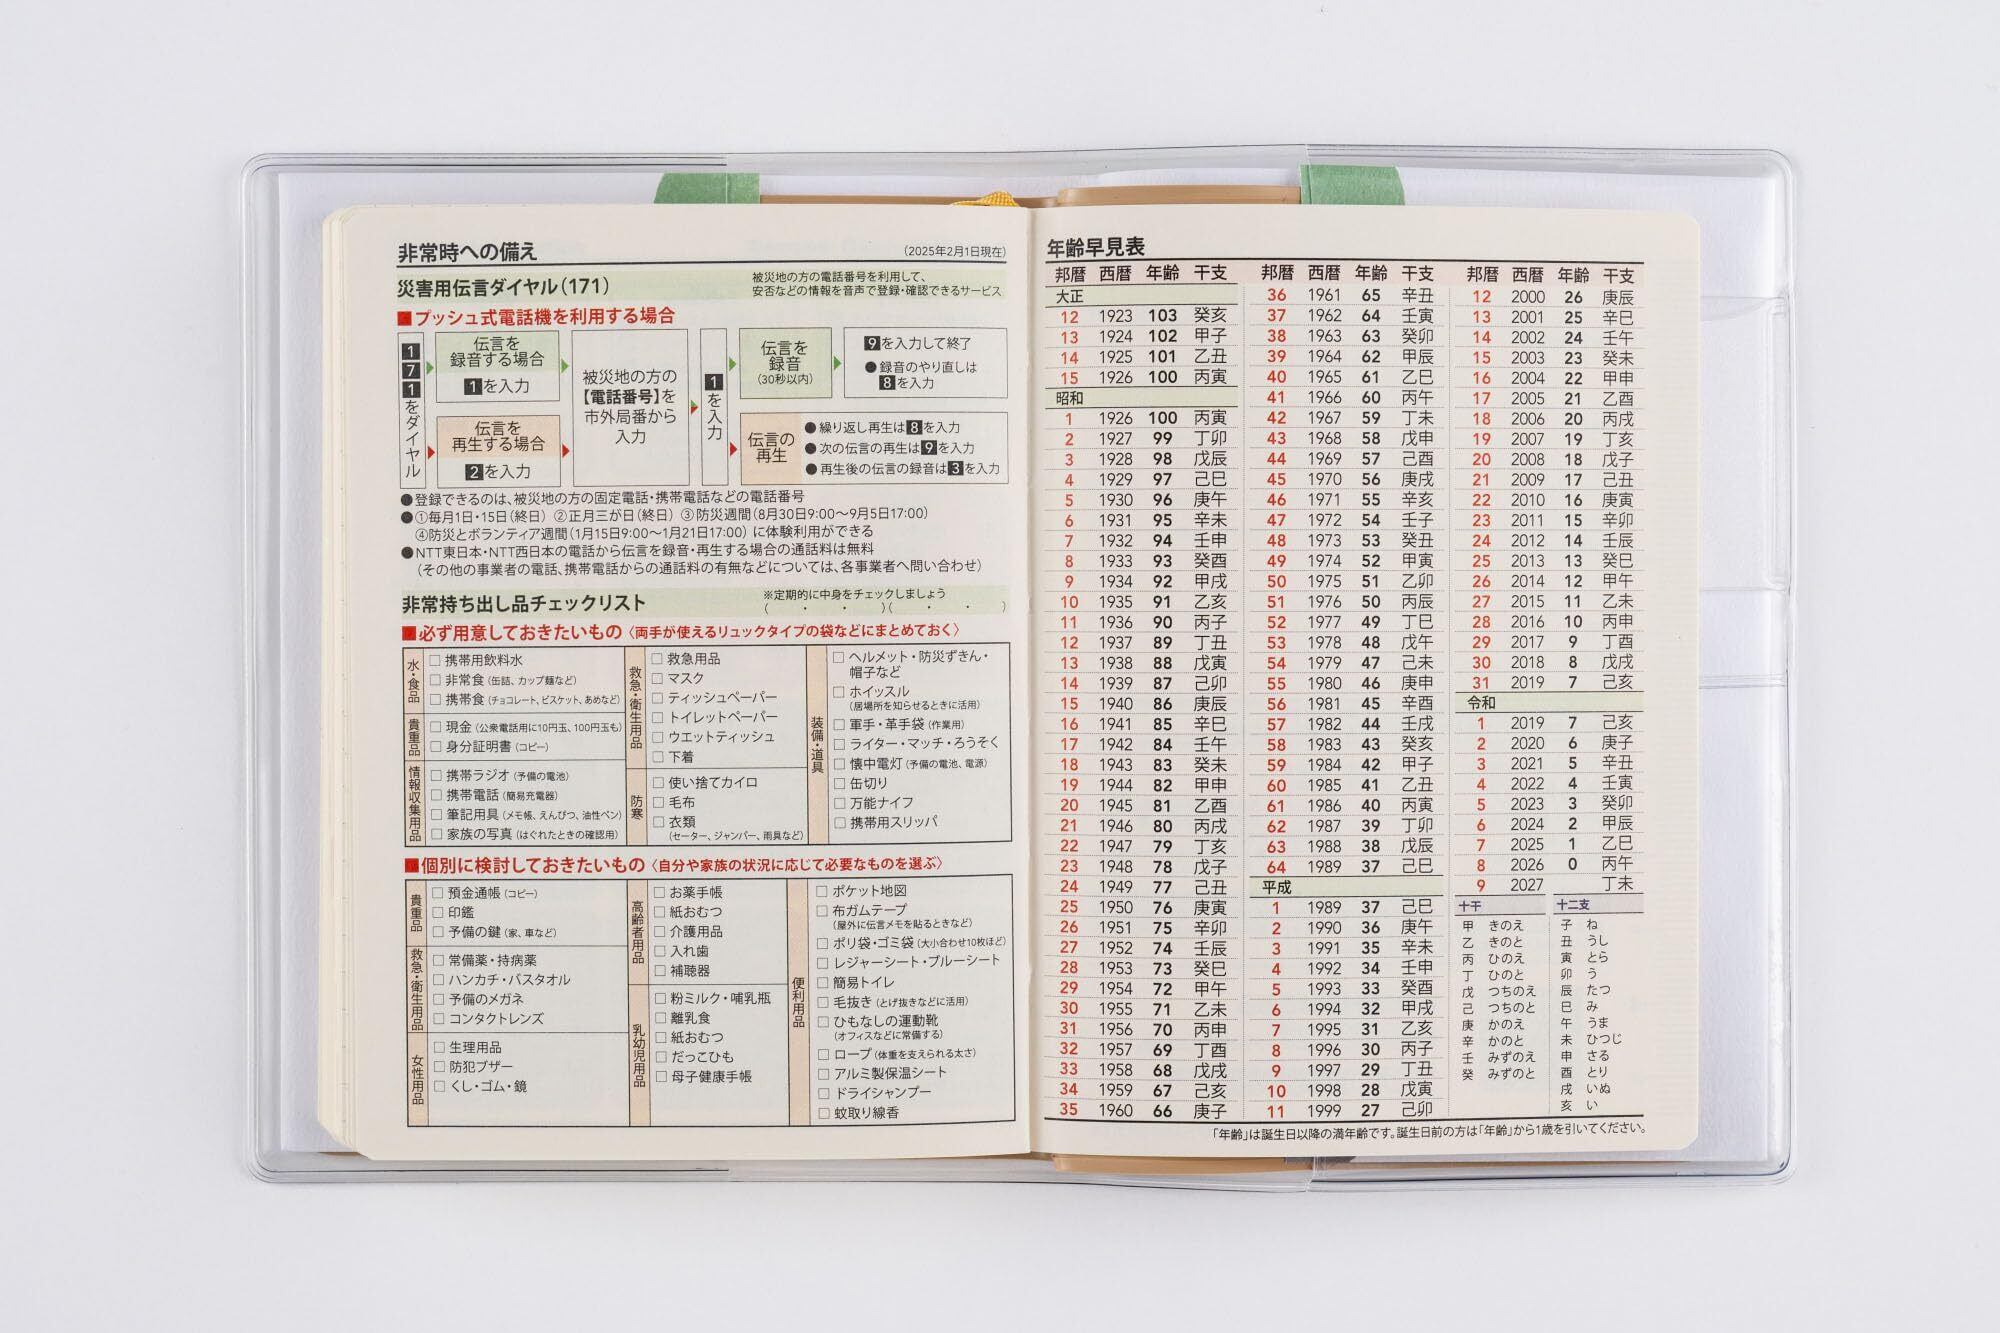 非常時への備え
(2025年2月1日現在)
災害用伝言ダイヤル(171)
被災地の方の電話番号を利用して、
安否などの情報を音声で登録・確認できるサービス
プッシュ式電話機を利用する場合
171をダイヤル
伝言を
録音する場合
1を入力
伝言を
再生する場合
2を入力
被災地の方の
【電話番号】を
市外局番から
入力
1を入力
伝言を
録音
(30秒以内)
9を入力して終了
●録音のやり直しは
8を入力
伝言の
再生
●繰り返し再生は8を入力
●次の伝言の再生は9を入力
●再生後の伝言の録音は3を入力
●登録できるのは、被災地の方の固定電話・携帯電話などの電話番号
●①毎月1日・15日(終日) ②正月三が日(終日) ③防災週間(8月30日9:00〜9月5日17:00)
④防災とボランティア週間(1月15日9:00〜1月21日17:00)に体験利用ができる
●NTT東日本・NTT西日本の電話から伝言を録音・再生する場合の通話料は無料
(その他の事業者の電話、携帯電話からの通話料の有無などについては、各事業者へ問い合わせ)
非常持ち出し品チェックリスト
※定期的に中身をチェックしましょう
( ・ ・ )( ・ ・ )
必ず用意しておきたいもの〈両手が使えるリュックタイプの袋などにまとめておく〉
水・食品
□携帯用飲料水
□非常食(缶詰、カップ麺など)
□携帯食(チョコレート、ビスケット、あめなど)
貴重品
□現金(公衆電話用に10円玉、100円玉も)
□身分証明書(コピー)
情報収集用品
□携帯ラジオ(予備の電池)
□携帯電話(簡易充電器)
□筆記用具(メモ帳、えんぴつ、油性ペン)
□家族の写真(はぐれたときの確認用)
救急・衛生用品
□救急用品
□マスク
□ティッシュペーパー
□トイレットペーパー
□ウエットティッシュ
□下着
防寒
□使い捨てカイロ
□毛布
□衣類
(セーター、ジャンパー、雨具など)
装備・道具
□ヘルメット・防災ずきん・
帽子など
□ホイッスル
(居場所を知らせるときに活用)
□軍手・革手袋(作業用)
□ライター・マッチ・ろうそく
□懐中電灯(予備の電池、電源)
□缶切り
□万能ナイフ
□携帯用スリッパ
個別に検討しておきたいもの〈自分や家族の状況に応じて必要なものを選ぶ〉
貴重品
□預金通帳(コピー)
□印鑑
□予備の鍵(家、車など)
救急・衛生用品
□常備薬・持病薬
□ハンカチ・バスタオル
□予備のメガネ
□コンタクトレンズ
女性用品
□生理用品
□防犯ブザー
□くし・ゴム・鏡
高齢者用品
□お薬手帳
□紙おむつ
□介護用品
□入れ歯
□補聴器
乳幼児用品
□粉ミルク・哺乳瓶
□離乳食
□紙おむつ
□だっこひも
□母子健康手帳
便利用品
□ポケット地図
□布ガムテープ
(屋外に伝言メモを貼るときなど)
□ポリ袋・ゴミ袋(大小合わせ10枚ほど)
□レジャーシート・ブルーシート
□簡易トイレ
□毛抜き(とげ抜きなどに活用)
□ひもなしの運動靴
(オフィスなどに常備する)
□ロープ(体重を支えられる太さ)
□アルミ製保温シート
□ドライシャンプー
□蚊取り線香
年齢早見表
邦暦 西暦 年齢 干支
大正
12 1923 103 癸亥
13 1924 102 甲子
14 1925 101 乙丑
15 1926 100 丙寅
昭和
1 1926 100 丙寅
2 1927 99 丁卯
3 1928 98 戊辰
4 1929 97 己巳
5 1930 96 庚午
6 1931 95 辛未
7 1932 94 壬申
8 1933 93 癸酉
9 1934 92 甲戌
10 1935 91 乙亥
11 1936 90 丙子
12 1937 89 丁丑
13 1938 88 戊寅
14 1939 87 己卯
15 1940 86 庚辰
16 1941 85 辛巳
17 1942 84 壬午
18 1943 83 癸未
19 1944 82 甲申
20 1945 81 乙酉
21 1946 80 丙戌
22 1947 79 丁亥
23 1948 78 戊子
24 1949 77 己丑
25 1950 76 庚寅
26 1951 75 辛卯
27 1952 74 壬辰
28 1953 73 癸巳
29 1954 72 甲午
30 1955 71 乙未
31 1956 70 丙申
32 1957 69 丁酉
33 1958 68 戊戌
34 1959 67 己亥
35 1960 66 庚子
邦暦 西暦 年齢 干支
36 1961 65 辛丑
37 1962 64 壬寅
38 1963 63 癸卯
39 1964 62 甲辰
40 1965 61 乙巳
41 1966 60 丙午
42 1967 59 丁未
43 1968 58 戊申
44 1969 57 己酉
45 1970 56 庚戌
46 1971 55 辛亥
47 1972 54 壬子
48 1973 53 癸丑
49 1974 52 甲寅
50 1975 51 乙卯
51 1976 50 丙辰
52 1977 49 丁巳
53 1978 48 戊午
54 1979 47 己未
55 1980 46 庚申
56 1981 45 辛酉
57 1982 44 壬戌
58 1983 43 癸亥
59 1984 42 甲子
60 1985 41 乙丑
61 1986 40 丙寅
62 1987 39 丁卯
63 1988 38 戊辰
64 1989 37 己巳
平成
1 1989 37 己巳
2 1990 36 庚午
3 1991 35 辛未
4 1992 34 壬申
5 1993 33 癸酉
6 1994 32 甲戌
7 1995 31 乙亥
8 1996 30 丙子
9 1997 29 丁丑
10 1998 28 戊寅
11 1999 27 己卯
邦暦 西暦 年齢 干支
12 2000 26 庚辰
13 2001 25 辛巳
14 2002 24 壬午
15 2003 23 癸未
16 2004 22 甲申
17 2005 21 乙酉
18 2006 20 丙戌
19 2007 19 丁亥
20 2008 18 戊子
21 2009 17 己丑
22 2010 16 庚寅
23 2011 15 辛卯
24 2012 14 壬辰
25 2013 13 癸巳
26 2014 12 甲午
27 2015 11 乙未
28 2016 10 丙申
29 2017 9 丁酉
30 2018 8 戊戌
31 2019 7 己亥
令和
1 2019 7 己亥
2 2020 6 庚子
3 2021 5 辛丑
4 2022 4 壬寅
5 2023 3 癸卯
6 2024 2 甲辰
7 2025 1 乙巳
8 2026 0 丙午
9 2027 丁未
十干
甲 きのえ
乙 きのと
丙 ひのえ
丁 ひのと
戊 つちのえ
己 つちのと
庚 かのえ
辛 かのと
壬 みずのえ
癸 みずのと
十二支
子 ね
丑 うし
寅 とら
卯 う
辰 たつ
巳 み
午 うま
未 ひつじ
申 さる
酉 とり
戌 いぬ
亥 い
「年齢」は誕生日以降の満年齢です。誕生日前の方は「年齢」から1歳を引いてください。